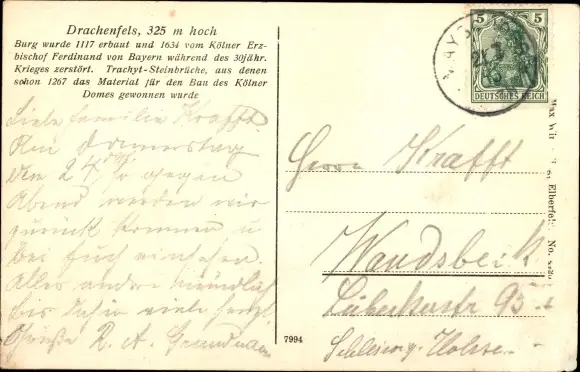 Drachenfels, 325 m hoch
Burg wurde 1117 erbaut und 1634 vom Kölner Erz-
bischof Ferdinand von Bayern während des 30jähr.
Krieges zerstört. Trachyt-Steinbrüche, aus denen
schon 1267 das Material für den Bau des Kölner
Domes gewonnen wurde
Liebe Familie Krafft.
Am Donnerstag
den 24 gegen
Abend werden wir
zurück kommen u
bei Euch einsehen.
Alles andere mündlich
bis dahin viele herzl
Grüße R. A.
5 5
DEUTSCHES REICH
Herrn Krafft
Wandsbeck
Lübeckerstr 95
Schleswig-Holstein
7994
Max Elberfeld, No.